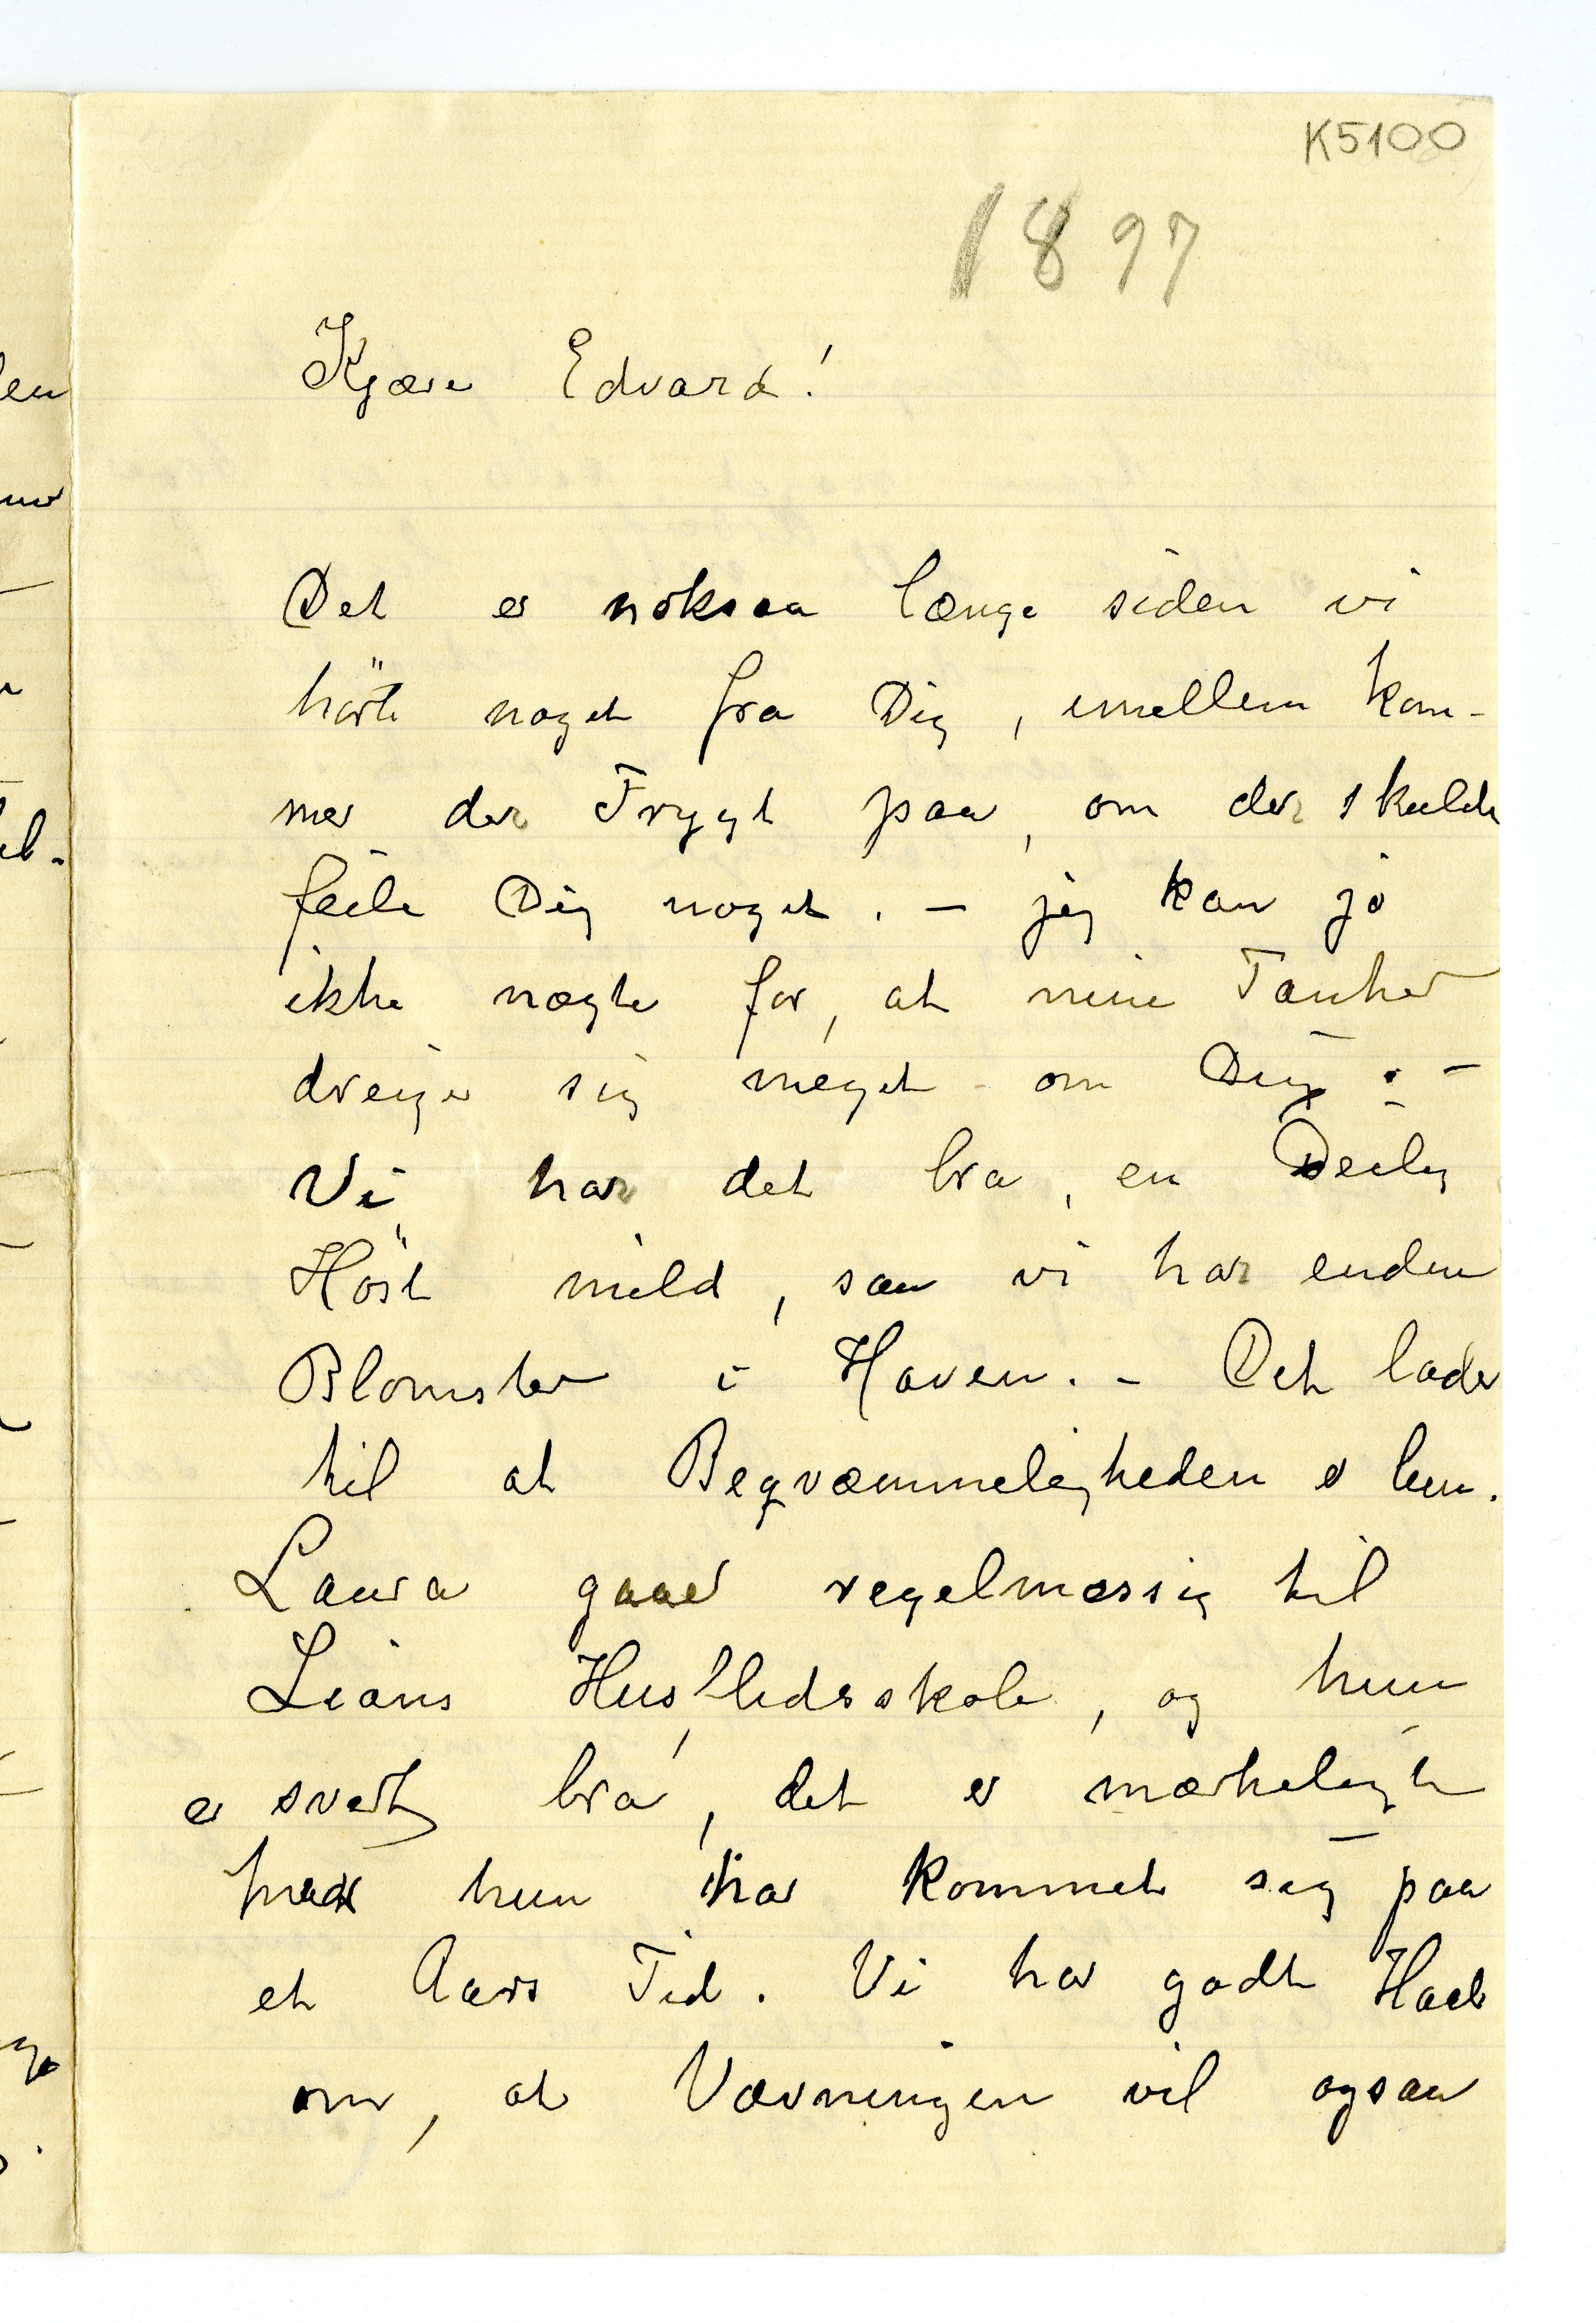 K5100
1897
Kjære Edvard!
Det er noksaa længe siden vi
hørte noget fra Dig, imellem kom-
mer der Frygt paa, om der skulde
feile Dig noget. – jeg kan jo
ikke nægte for, at mine Tanker
dreier sig meget om Dig. –
Vi har det bra, en Deilig
Höst mild, saa vi har endnu
Blomster i Haven. – Det lader
til at Beqvæmmeligheden er
Laura gaaer regelmæssig til
Husflidsskole, og hun
er svært bra, det er mærkeligt
hvad hun har kommet sig paa
et Aars Tid. Vi har godt Haab
om, at Vævningen vil ogsaa